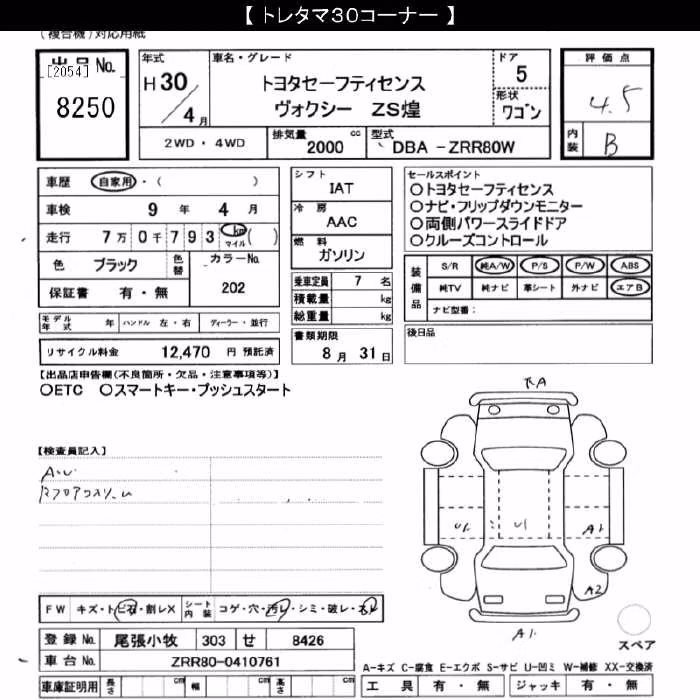 【 トレタマ30コーナー 】
(複合機)対応用紙
出品 No.
[2054]
8250
年式
H 30
4 月
車名・グレード
トヨタセーフティセンス
ヴォクシー ZS煌
ドア
5
形状
ワゴン
評価点
4.5
内装
B
2WD・4WD
排気量 2000 cc
型式 DBA -ZRR80W
車歴 自家用・( )
車検 9 年 4 月
走行 7万 0千 7 9 3 km マイル ( )
色 ブラック 色替
カラーNo. 202
保証書 有・無
モデル年式 年 ハンドル 左・右 ディーラー・並行
リサイクル料金 12,470 円 預託済
シフト
IAT
冷房
AAC
燃料
ガソリン
乗車定員 7 名
積載量 kg
総重量 kg
書類期限
8 月 31 日
セールスポイント
○トヨタセーフティセンス
○ナビ・フリップダウンモニター
○両側パワースライドドア
○クルーズコントロール
装備品
S/R 純A/W P/S P/W ABS
純TV 純ナビ 革シート 外ナビ エアB
ナビ型番:
後日品
【出品店申告欄(不良箇所・欠品・注意事項等)】
○ETC ○スマートキー・プッシュスタート
【検査員記入】
A・U
FW キズ・トビ石・割レX
シート内装 コゲ・穴・汚レ・シミ・破レ・スレ
A1
A2
A1
スペア
登録 No. 尾張小牧 303 せ 8426
車台 No. ZRR80-0410761
車庫証明用 長さ cm 幅 cm 高さ cm
A-キズ C-腐食 E-エクボ S-サビ U-凹ミ W-補修 XX-交換済
工具 有・無 ジャッキ 有・無